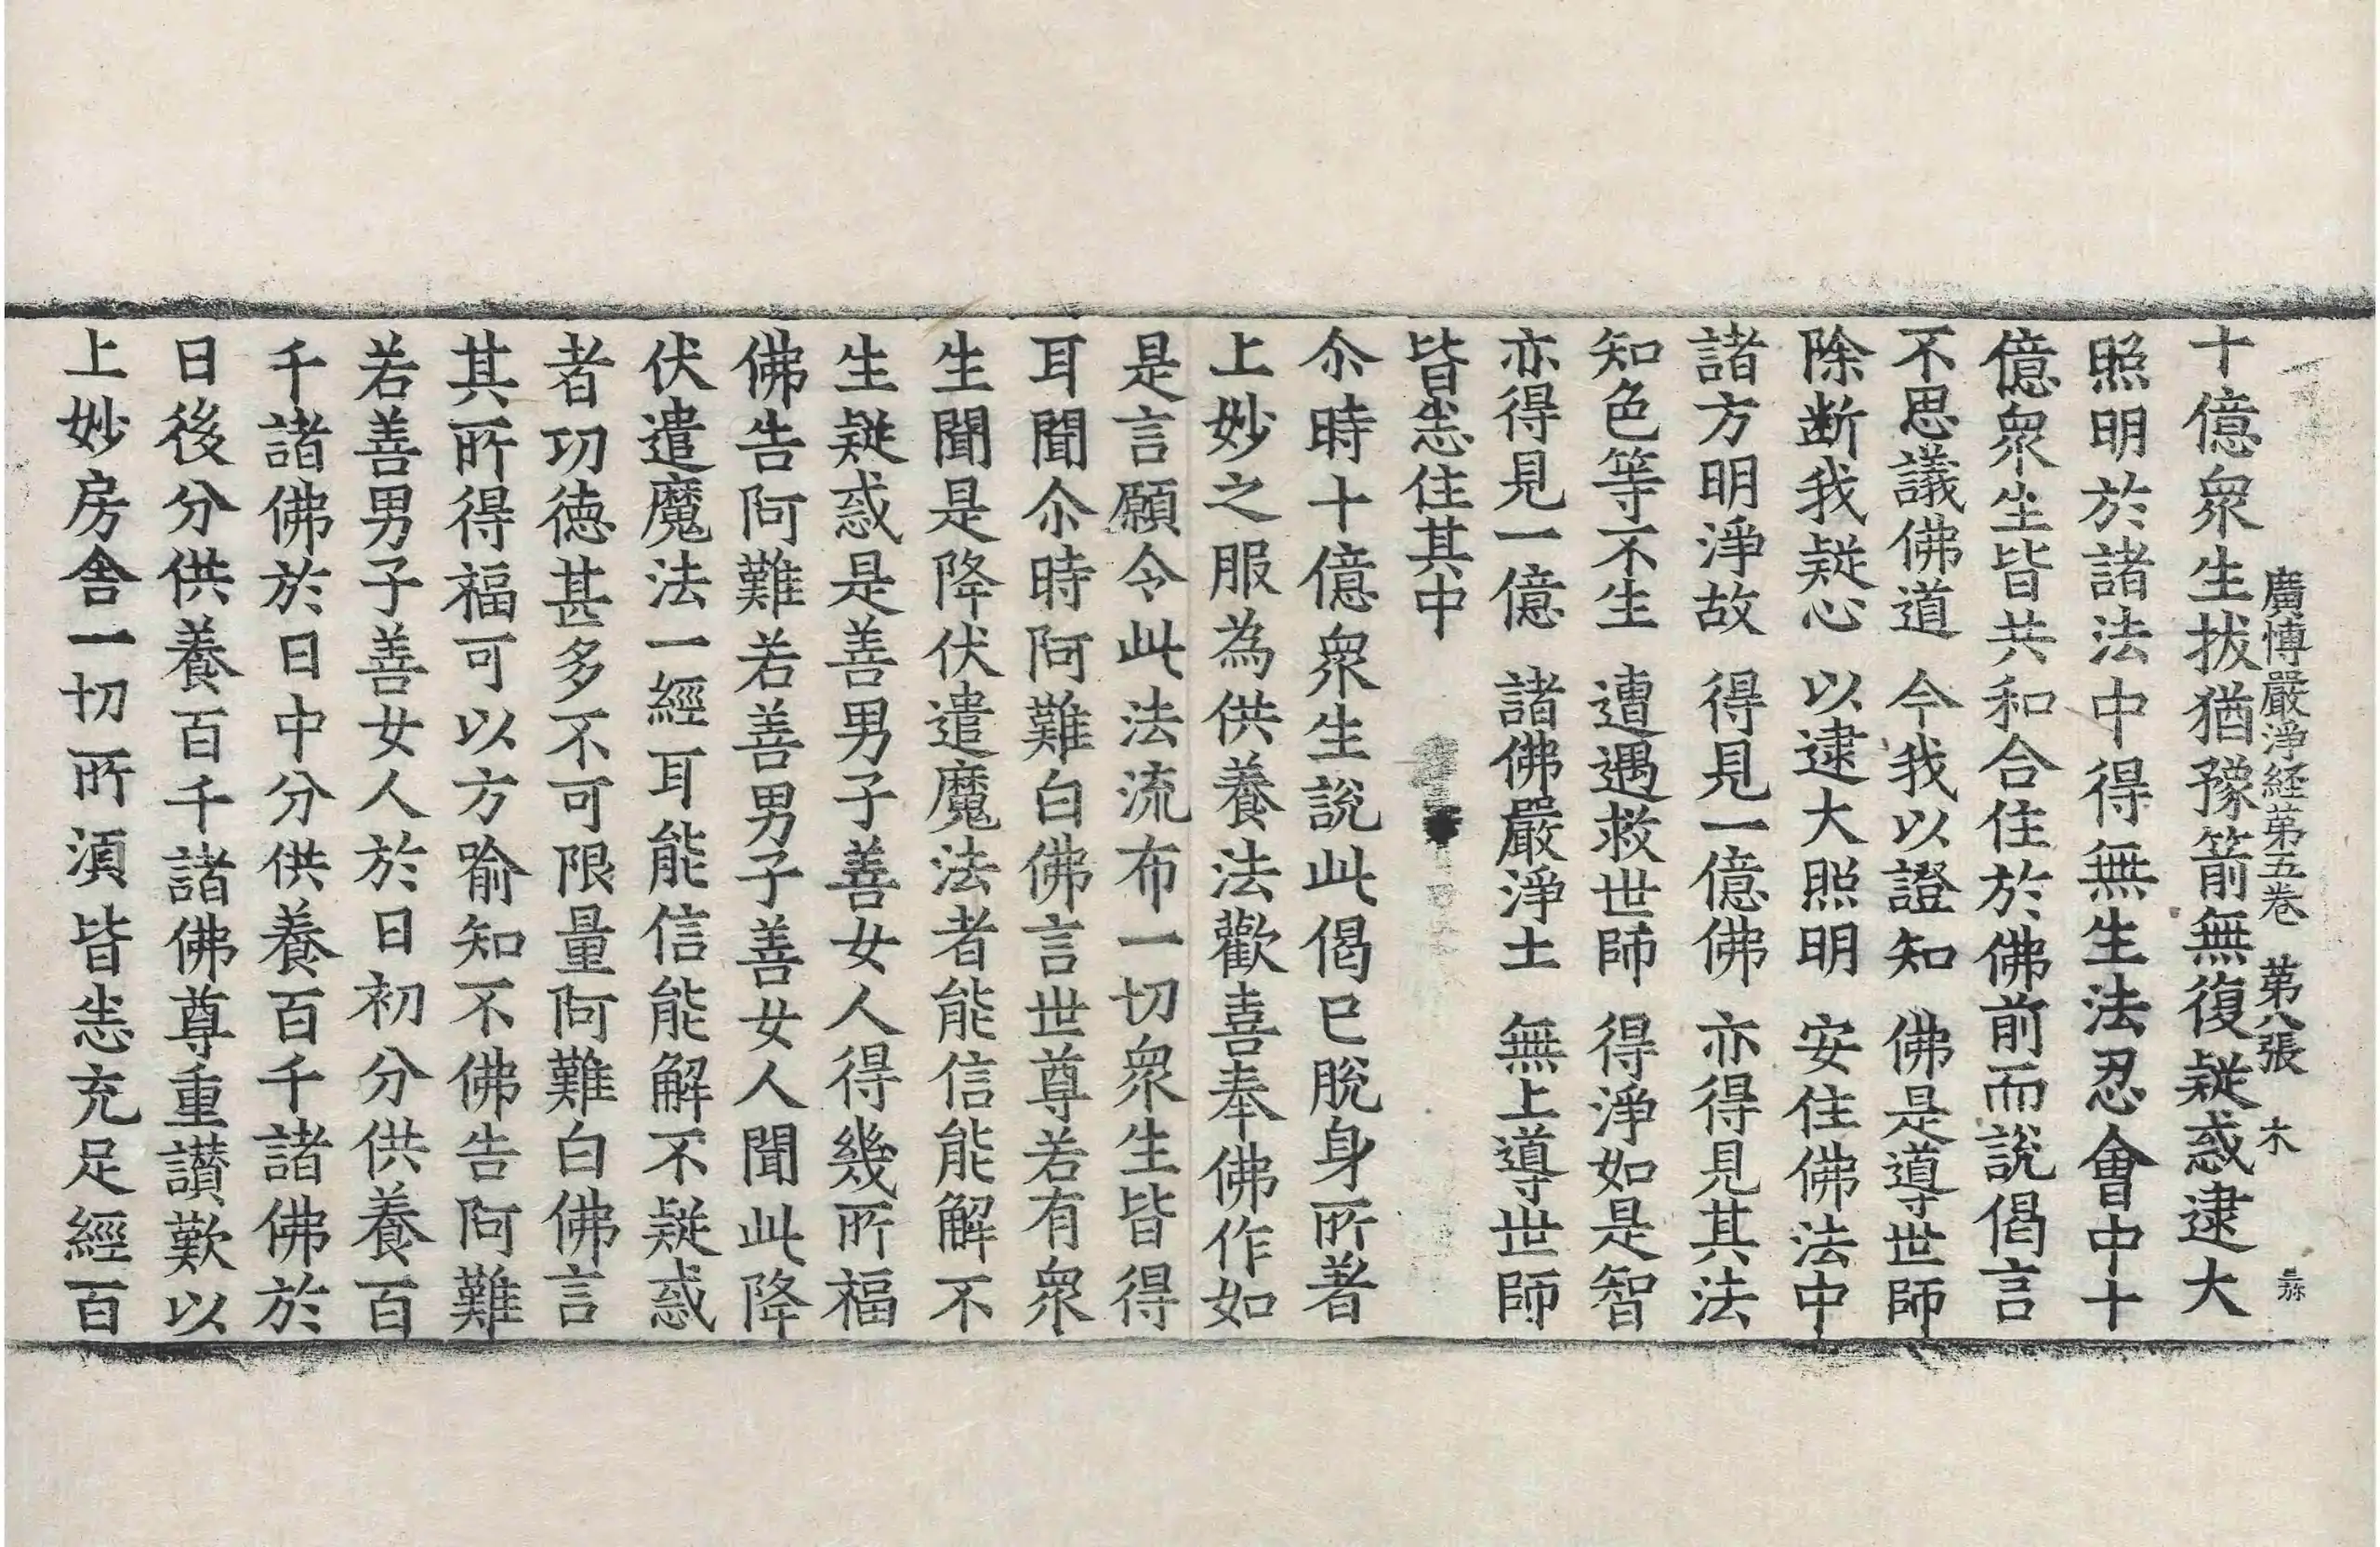 廣博嚴淨経苐五卷 苐八張 木
十億衆生拔猶豫箭無復疑惑逮大
照明於諸法中得無生法忍會中十
億衆生皆共和合住於佛前而說偈言
不思議佛道 今我以證知 佛是導世師
除断我疑心 以逮大照明 安住佛法中
諸方明淨故 得見一億佛 亦得見其法
知色等不生 遭遇救世師 得淨如是智
亦得見一億 諸佛嚴淨土 無上導世師
皆悉住其中
尒時十億衆生說此偈已脫身所著
上妙之服為供養法歡喜奉佛作如
是言願令此法流布一切衆生皆得
耳聞尒時阿難白佛言世尊若有衆
生聞是降伏遣魔法者能信能解不
生疑惑是善男子善女人得幾所福
佛告阿難若善男子善女人聞此降
伏遣魔法一經耳能信能解不疑惑
者功徳甚多不可限量阿難白佛言
其所得福可以方喻知不佛告阿難
若善男子善女人於日初分供養百
千諸佛於日中分供養百千諸佛於
日後分供養百千諸佛尊重讃歎以
上妙房舍一切所湏皆悉充足經百